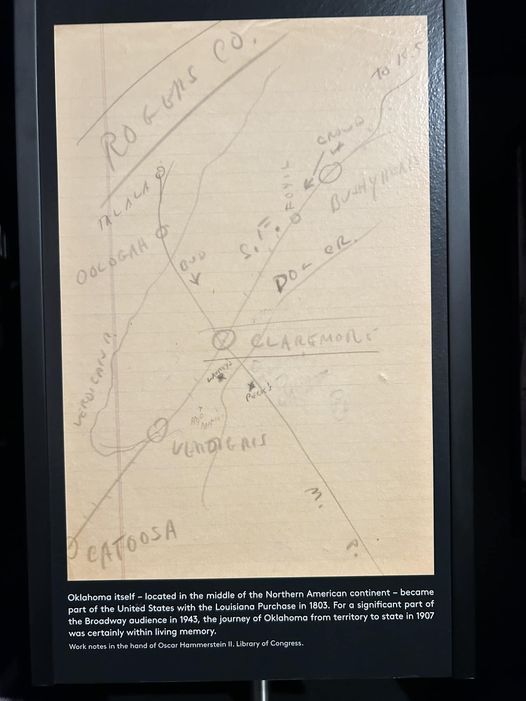 ROGERS CO.
TO K.S.
CROWD
TALALA
BUSHYHEAD
S. F.
OOLOGAH
BUD
DOG CR.
CLAREMORE
Peck's
VERDIGRIS
M.
P.
CATOOSA
Oklahoma itself – located in the middle of the Northern American continent – became
part of the United States with the Louisiana Purchase in 1803. For a significant part of
the Broadway audience in 1943, the journey of Oklahoma from territory to state in 1907
was certainly within living memory.
Work notes in the hand of Oscar Hammerstein II. Library of Congress.